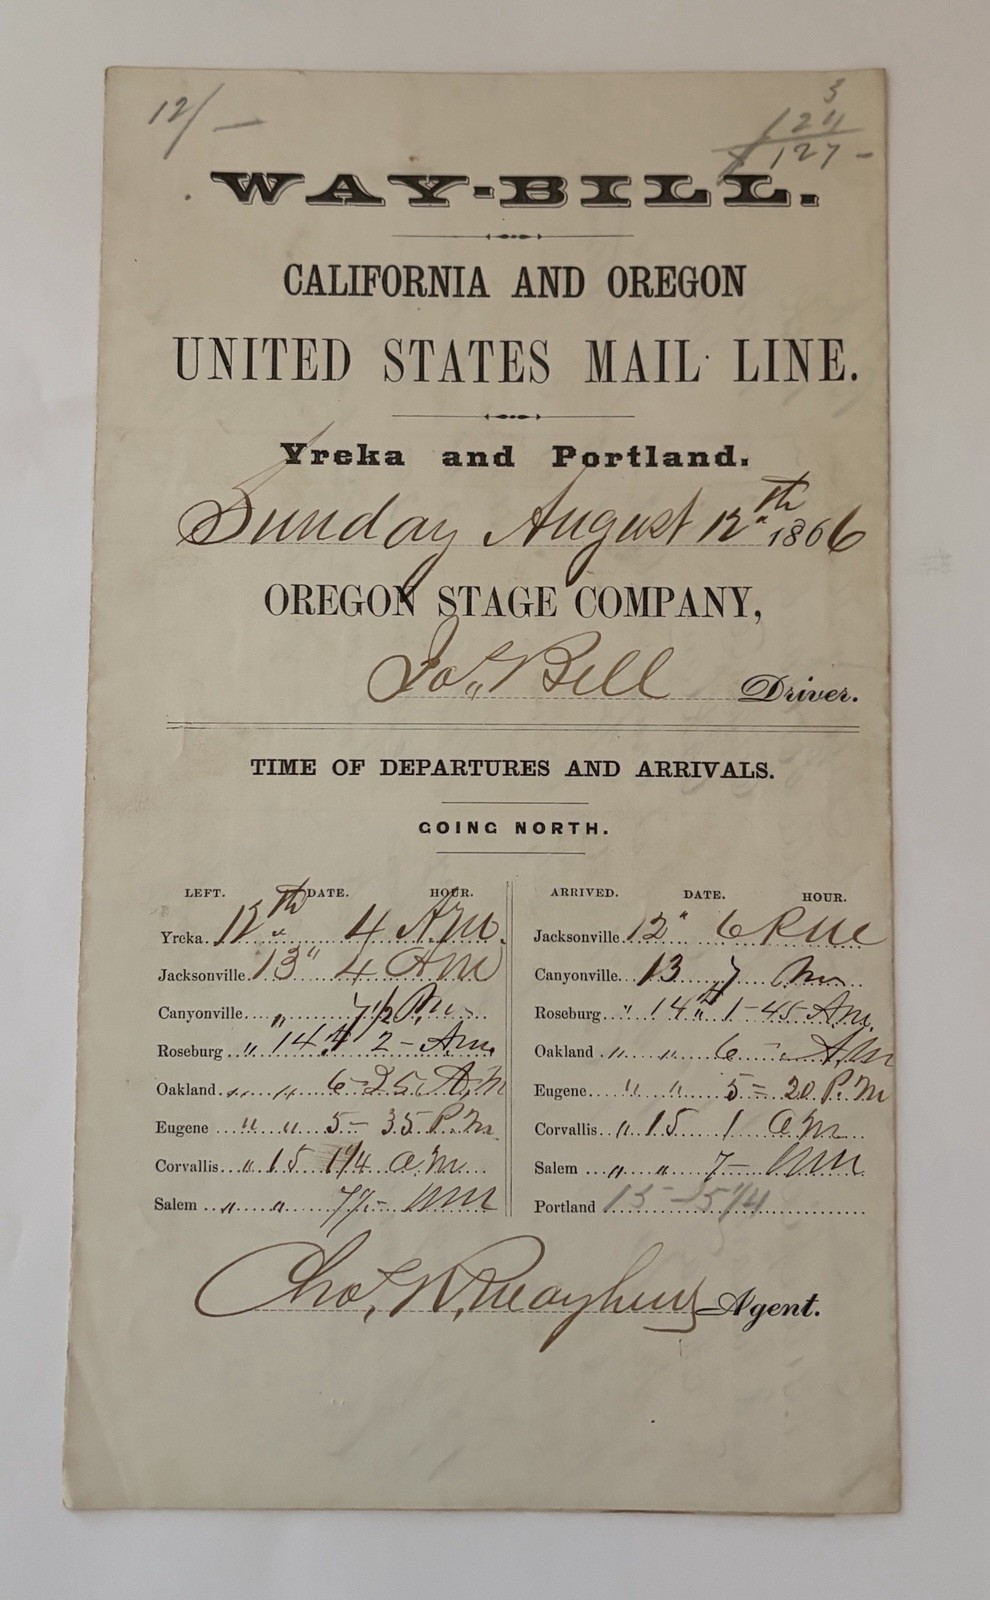 12/ —
3
124
127 —
WAY-BILL.
CALIFORNIA AND OREGON
UNITED STATES MAIL LINE.
Yreka and Portland.
Sunday August 12th 1866
OREGON STAGE COMPANY,
Jos. Bell Driver.
TIME OF DEPARTURES AND ARRIVALS.
GOING NORTH.
LEFT. DATE. HOUR. ARRIVED. DATE. HOUR.
Yreka. 12th 4 A.M. Jacksonville 12" 6 P.M.
Jacksonville 13" 4 AM Canyonville 13 7
Canyonville " 7 1/2 P.M. Roseburg " 14th 1-45 Am.
Roseburg " 14th 2 - A.m. Oakland " " 6 - A.M
Oakland " " 6-25 A.M Eugene " " 5 = 20 P.M
Eugene " " 5 - 35 P.M. Corvallis " 15 1 a.m.
Corvallis " 15 1 1/4 a.m. Salem " " 7 -
Salem " " Portland 15 - 5 1/4
Chas. W. Agent.